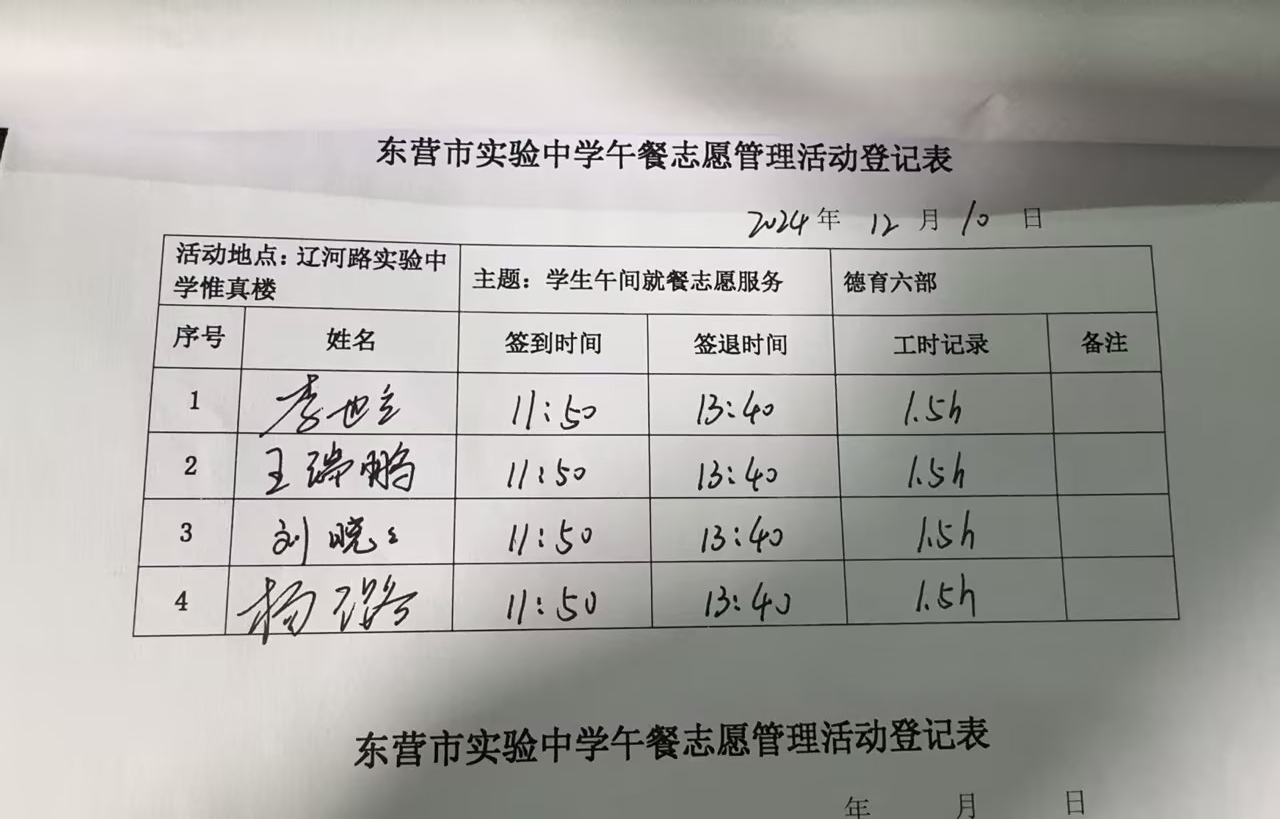 东营市实验中学午餐志愿管理活动登记表
2024年 12月 10日
活动地点：辽河路实验中学惟真楼 主题：学生午间就餐志愿服务 德育六部
序号 姓名 签到时间 签退时间 工时记录 备注
1 李世立 11:50 13:40 1.5h
2 王瑞鹏 11:50 13:40 1.5h
3 刘晓 11:50 13:40 1.5h
4 杨璐 11:50 13:40 1.5h
东营市实验中学午餐志愿管理活动登记表
年 月 日